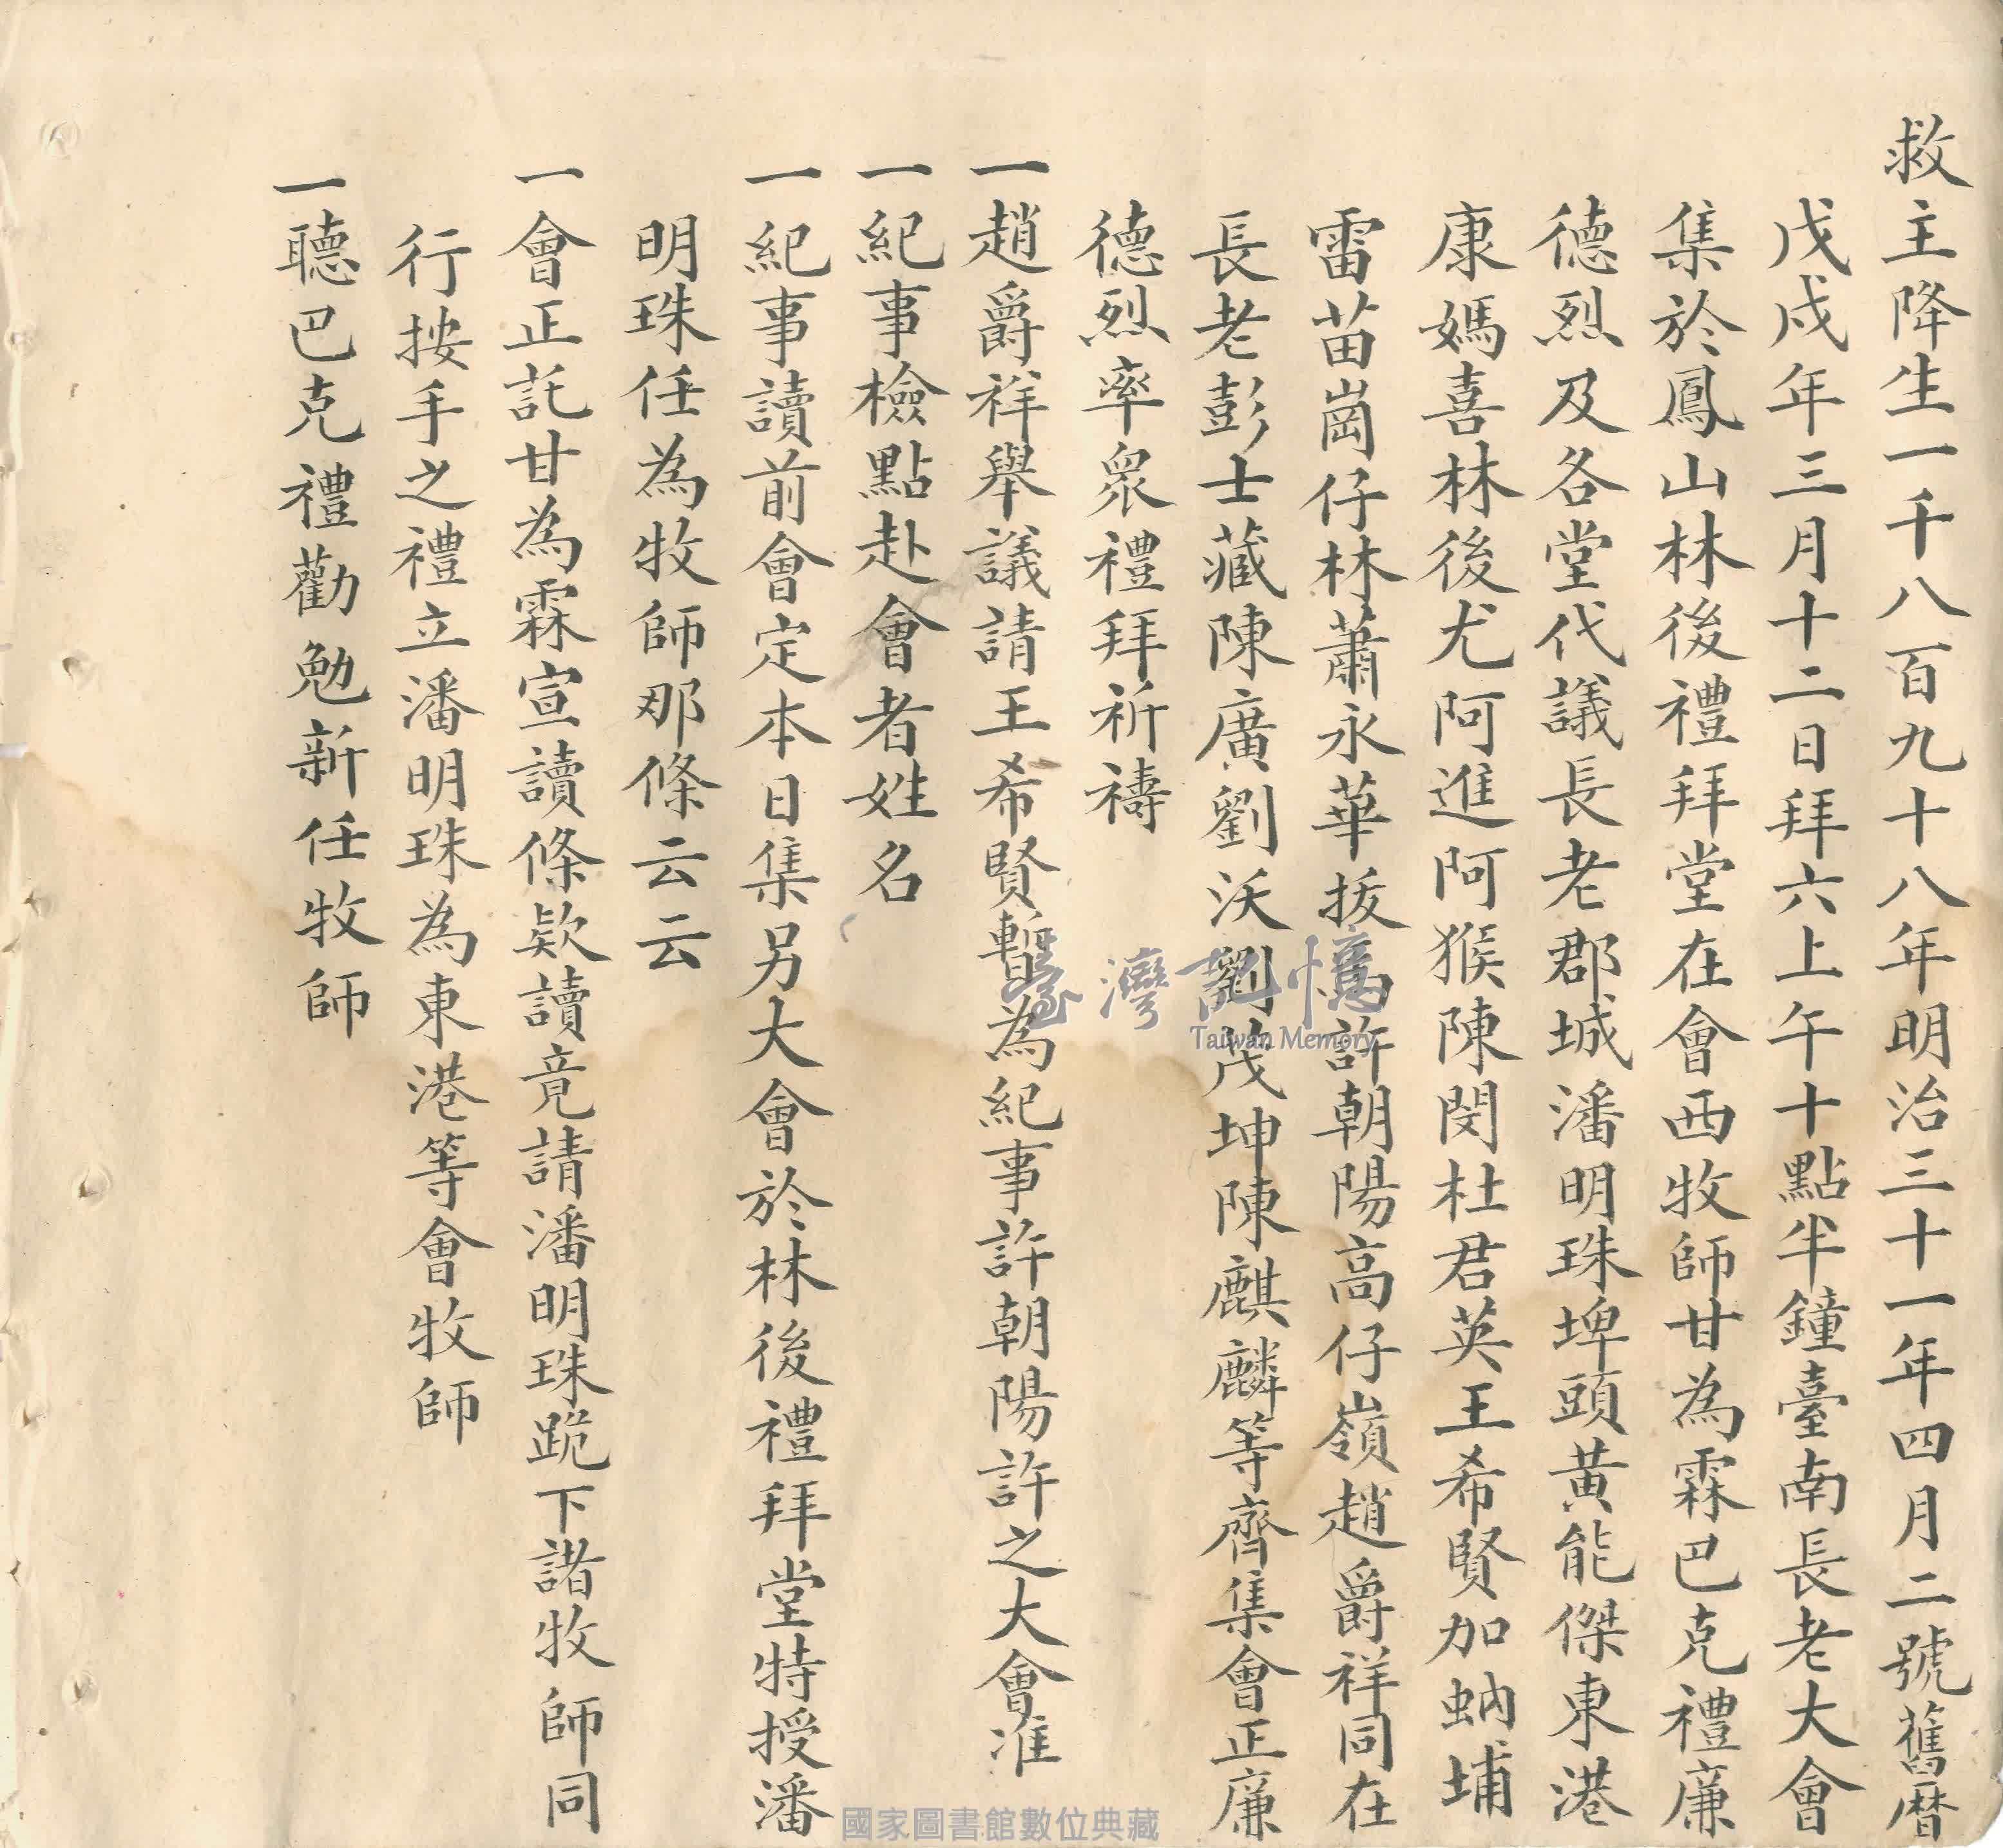 救主降生一千八百九十八年明治三十一年四月二號舊曆
戊戌年三月十二日拜六上午十點半鐘臺南長老大會
集於鳳山林後禮拜堂在會西牧師甘為霖巴克禮廉
德烈及各堂代議長老郡城潘明珠埤頭黃能傑東港
康媽喜林後尤阿進阿猴陳閔杜君英王希賢加蚋埔
雷苗崗仔林蕭永華拔馬許朝陽高仔嶺趙爵祥同在
長老彭士藏陳廣劉沃劉茂坤陳麒麟等齊集會正廉
德烈率眾禮拜祈禱
一趙爵祥舉議請王希賢暫為紀事許朝陽許之大會准
一紀事檢點赴會者姓名
一紀事讀前會定本日集另大會於林後禮拜堂特授潘
明珠任為牧師那條云云
一會正託甘為霖宣讀條欵讀竟請潘明珠跪下諸牧師同
行按手之禮立潘明珠為東港等會牧師
一聽巴克禮勸勉新任牧師
臺灣記憶
Taiwan Memory
國家圖書館數位典藏